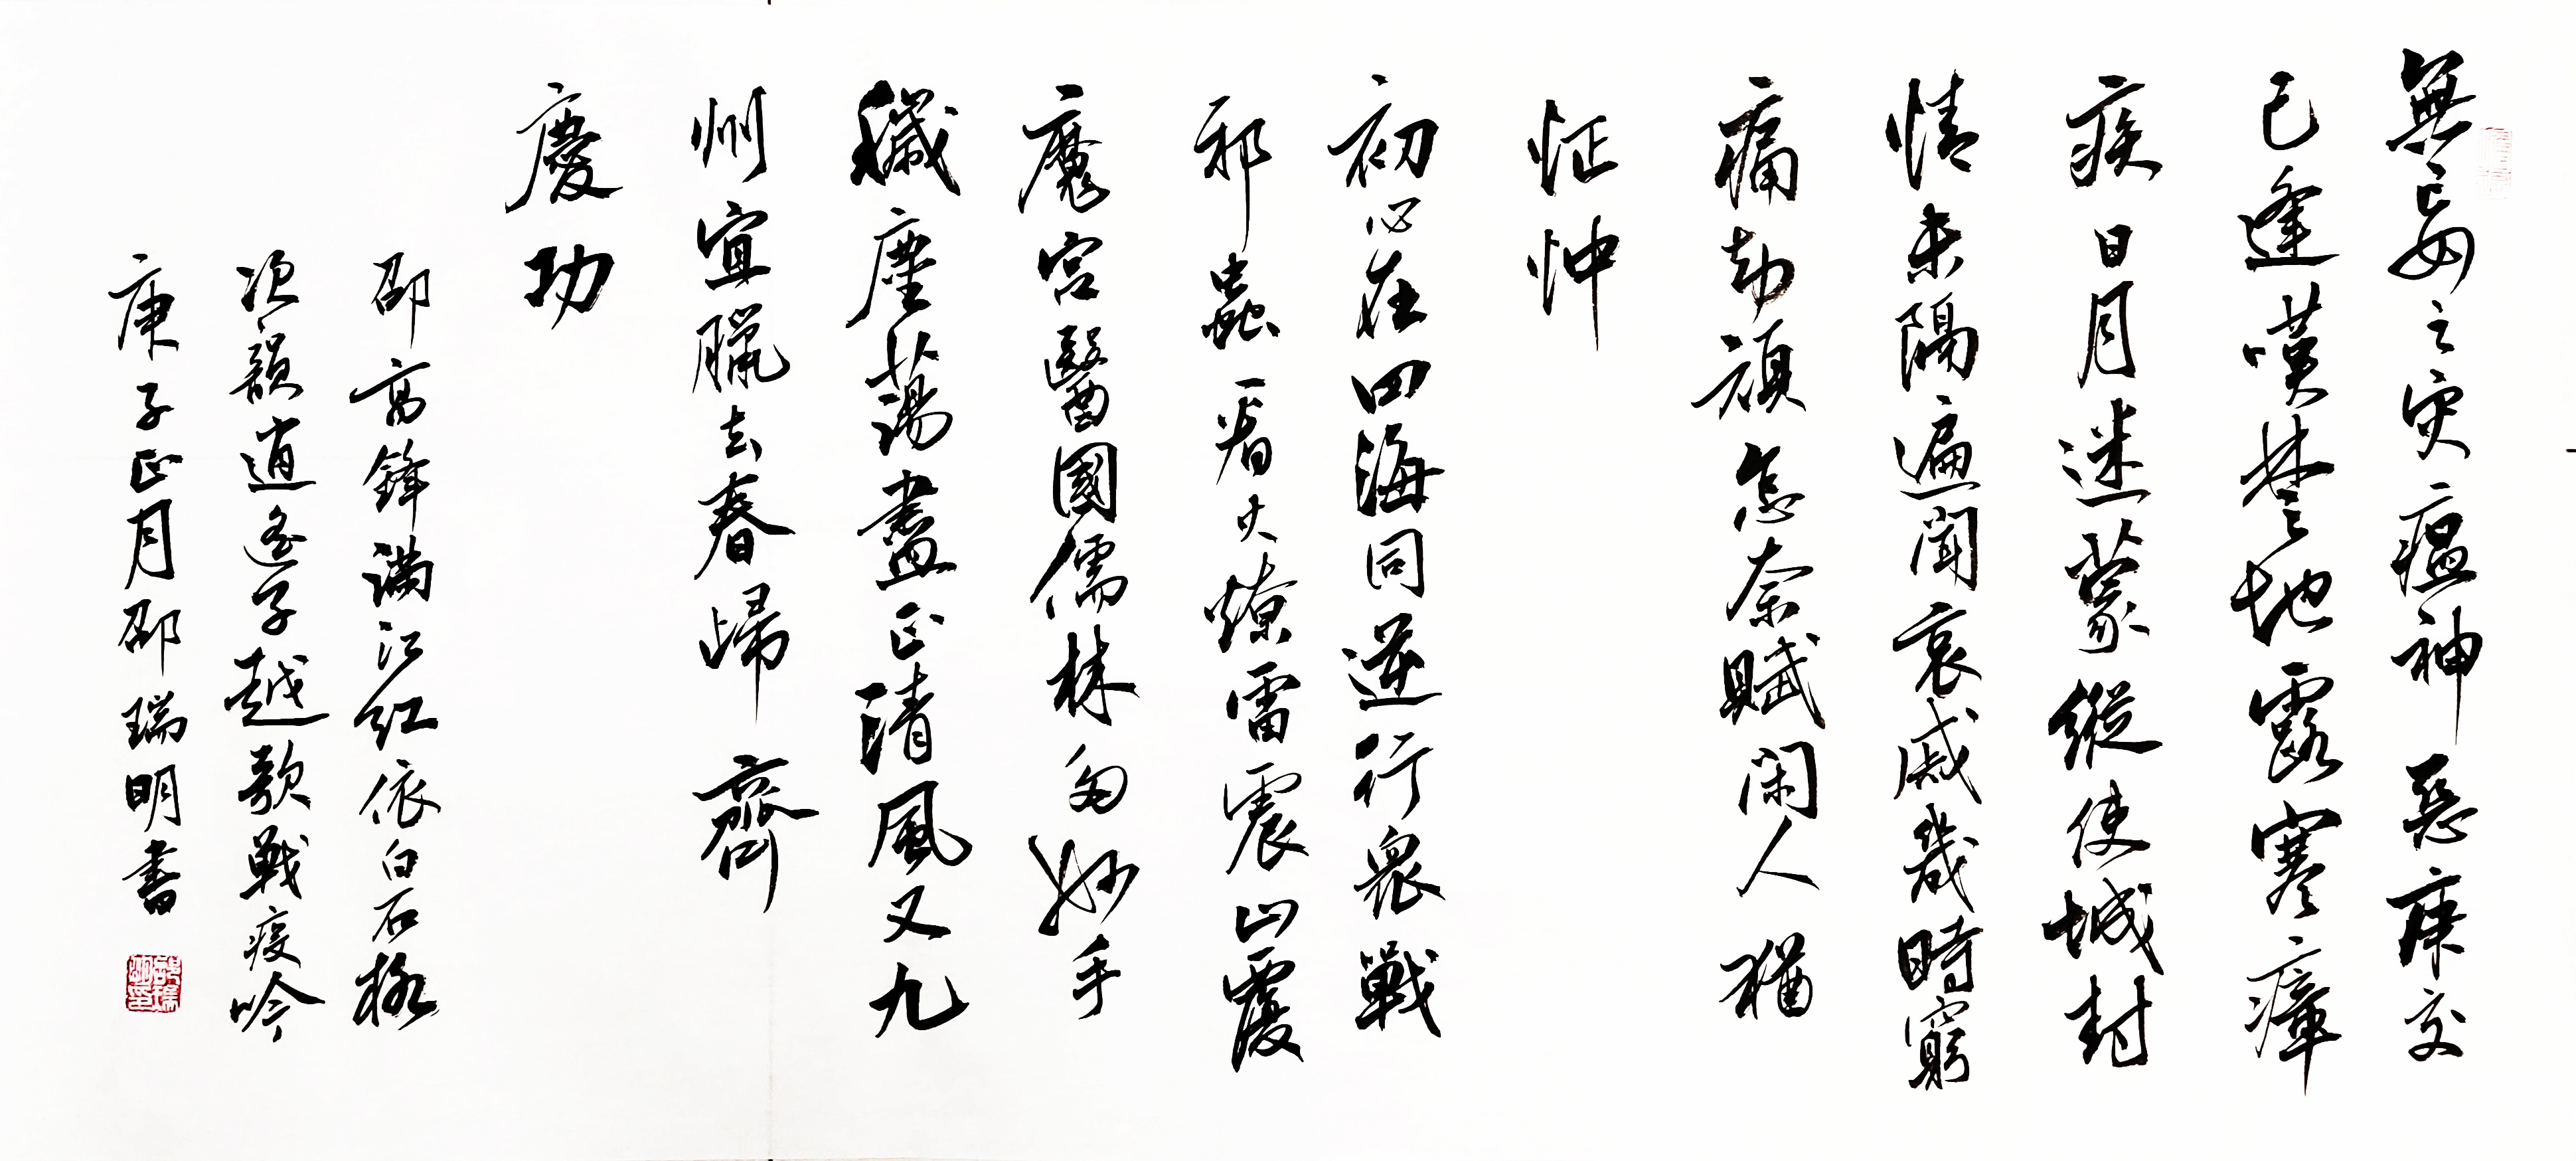 無妄之灾瘟神惡庚交
已逢嘆楚地露寒瘴
疾日月迷蒙縱使城封
情未隔遍聞哀戚幾時窮
痛劫頑怎奈賦闲人猶
怔忡
初心在四海同逆行衆戰
邪蟲一看火燎雷震山覆
魔宫醫國儒林多妙手
穢塵蕩盡正清風又九
州宜臘去春歸齊
慶功
邵高鋒满江红依白石格
次韻逍遙子越歌戰疫吟
庚子正月邵瑞明書